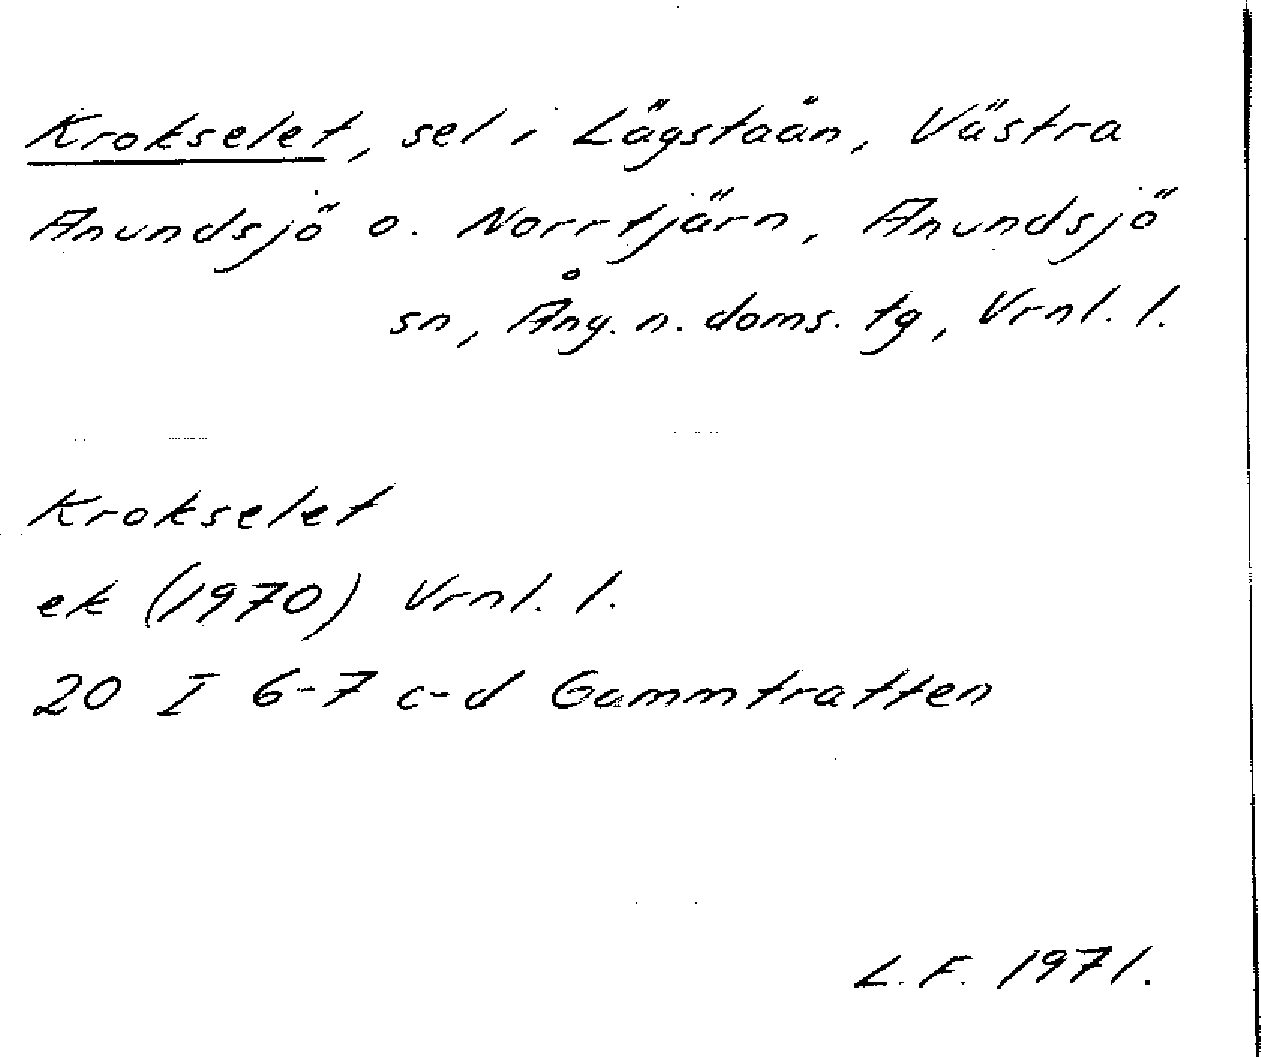 Krokselet, sel i Lägstaån, Västra
Anundsjö o. Norrtjärn, Anundsjö
sn, Ång. n. doms. tg, Vrnl. l.
Krokselet
ek (1970) Vrnl. l.
20 I 6-7 c-d Gammtratten
L. F. 1971.